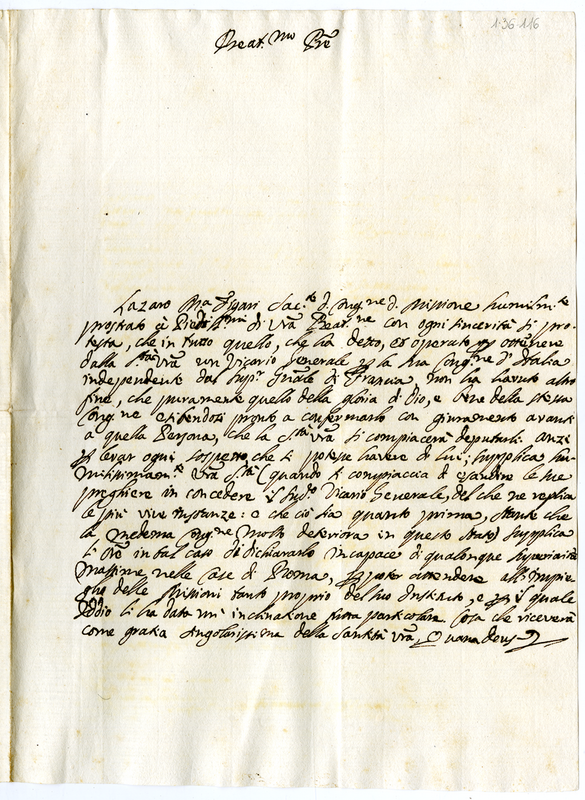 1-36-116
Beat.mo Prē
Lazaro Ma Figari Sac.te d. Congne d. Missione humilm.te
prostrato a' Piedi S.mi di Vrā Beat.ne con ogni sincerità si pro-
testa, che in tutto quello, che ha detto, et operato per ottenere
dalla S.tà Vrā un Vicario Generale per la sua Cong.ne d'Italia
independente dal Supr Gnāle di Francia, non ha havuto altro
fine, che puramente quello della gloria di Dio, e bene della stessa
Congne esibendosi pronto a confermarlo con giuramento avanti
a quella Persona, che la S.tà Vrā si compiacerà deputarli. Anzi
per levar ogni sospetto che si potesse havere di lui, supplica hu-
milissimam.te Vrā S.tà (quando si compiaccia d'esaudire le sue
preghiere in concedere il sud.o Vicario Generale, del che ne replica
le più vive instanze: e che ciò sia quanto prima, stante che
la medema Cong.ne molto deteriora in questo stato) supplica
in tal caso di dichiararlo incapace di qualunque superiorità
massime nelle Case di Roma, per poter attendere all' impie-
go delle Missioni tanto proprio del suo Instituto, e per il quale
Iddio li ha data un' inclinatione tutta particolare. Cosa che riceverà
come gratia singolarissima della Santità Vrā, Quam Deus